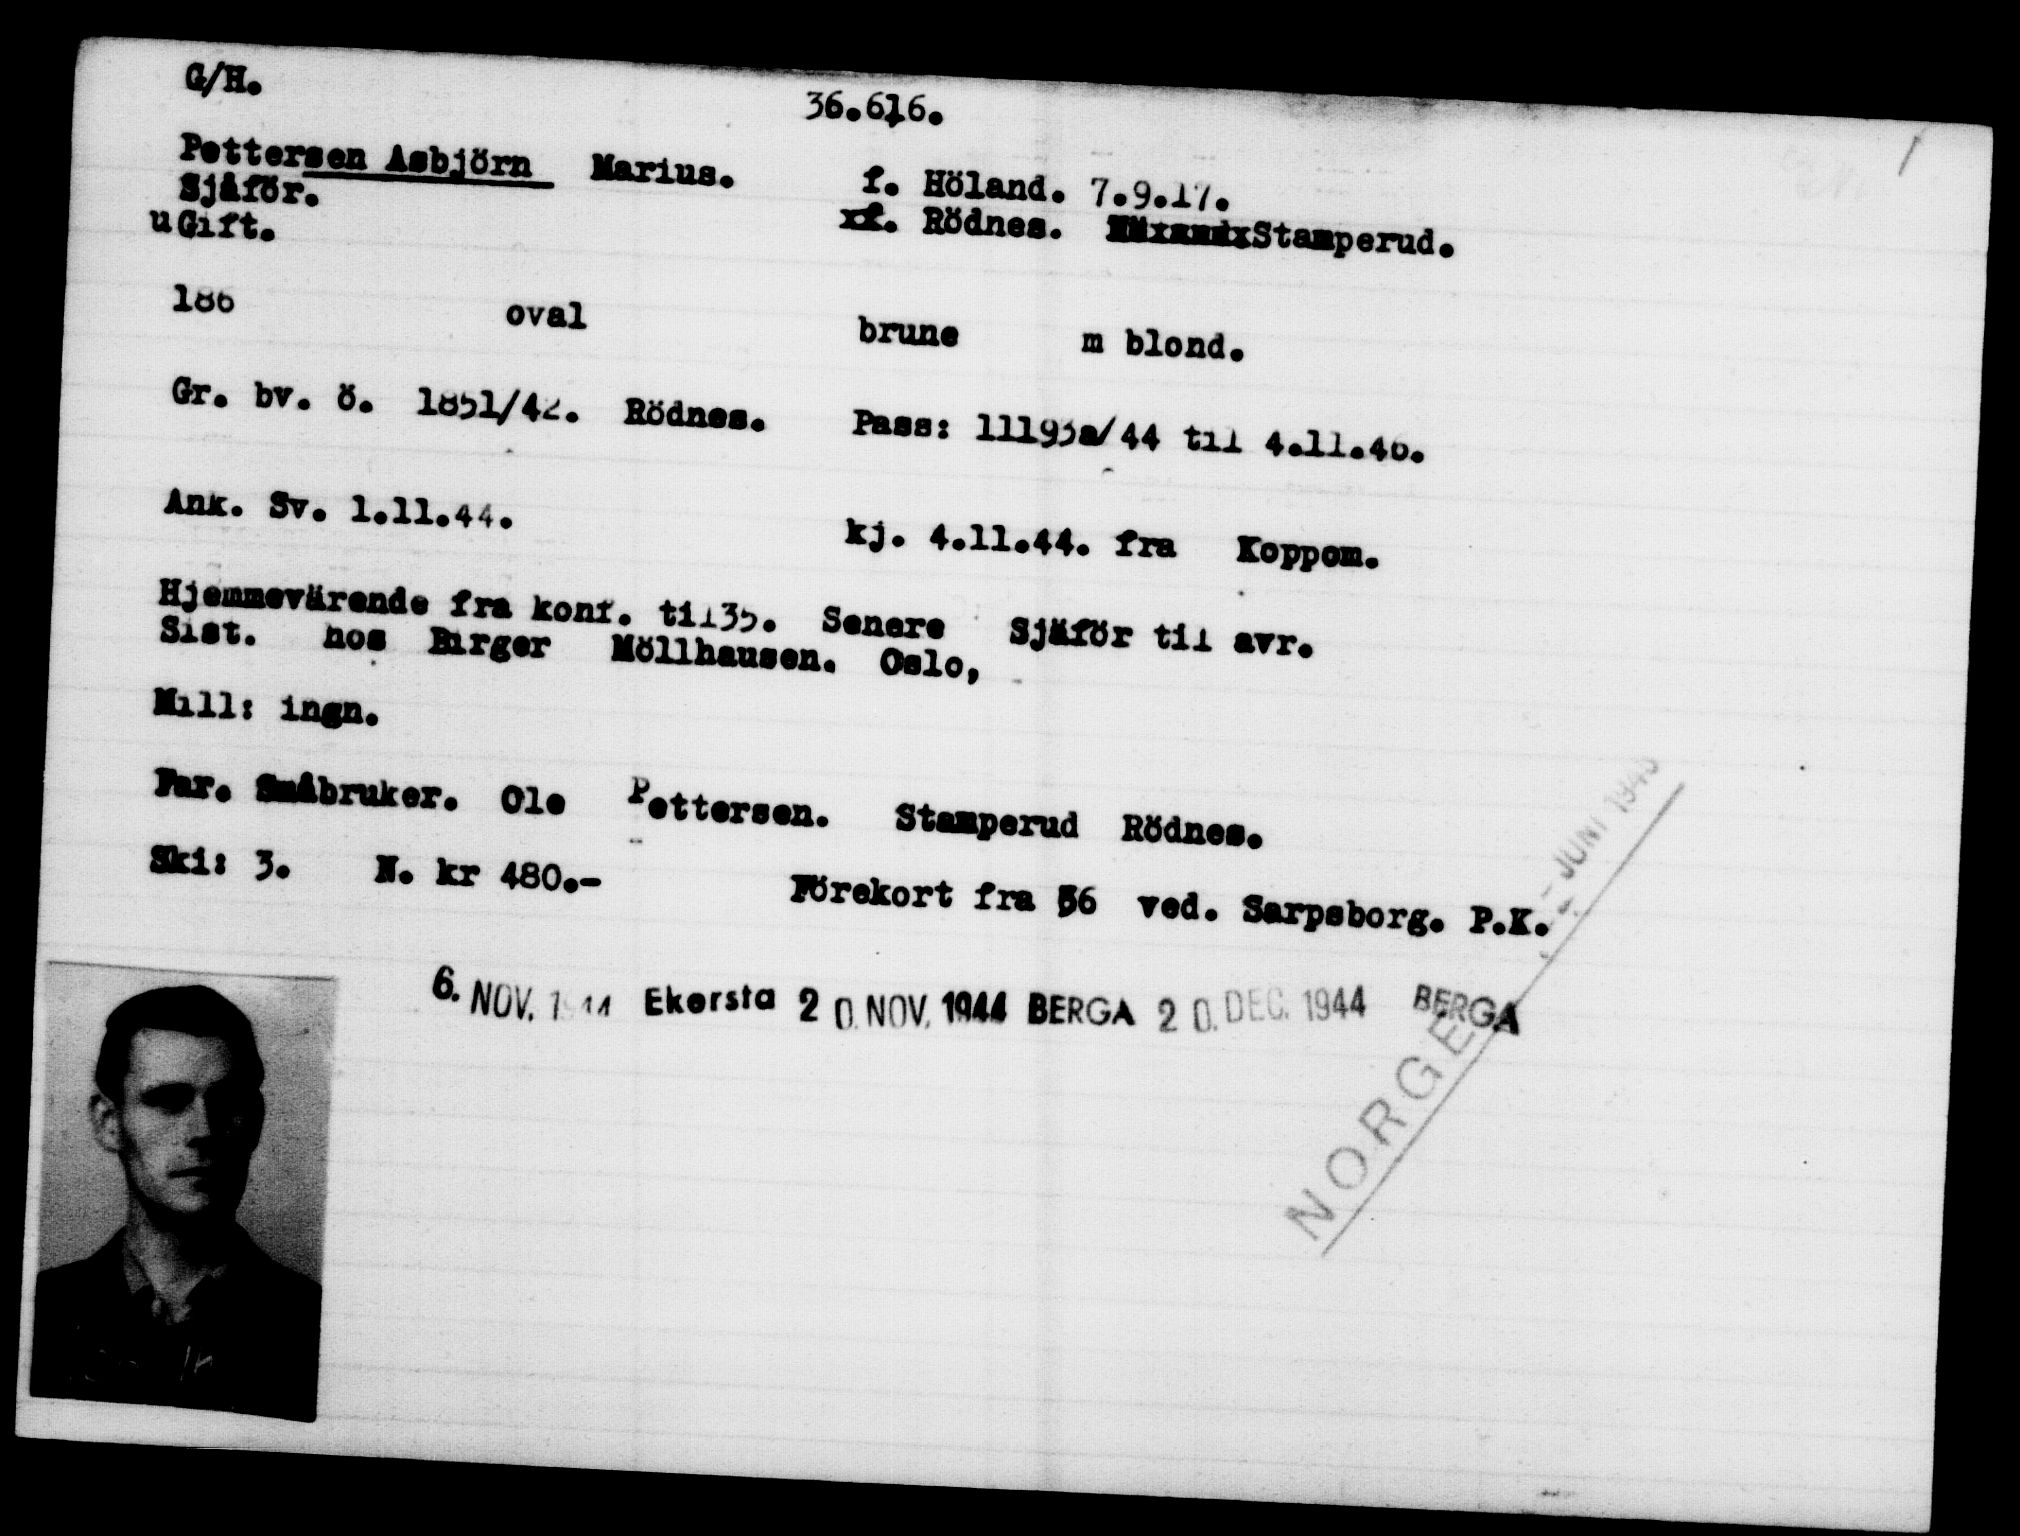 G/H.
36.616.
Pettersen Asbjörn Marius. f. Höland. 7.9.17.
Sjåför. xf. Rödnes. Stamperud.
uGift.
186 oval brune m blond.
Gr. bv. ö. 1851/42. Rödnes. Pass: 11193a/44 til 4.11.46.
Ank. Sv. 1.11.44. kj. 4.11.44. fra Koppom.
Hjemmevärende fra konf. til35. Senere Sjåför til avr.
Sist. hos Birger Möllhausen. Oslo,
Mill: ingn.
Far. Småbruker. Ole Pettersen. Stamperud Rödnes.
Ski: 3. N. kr 480.- Förekort fra 36 ved. Sarpsborg. P.K.
6. NOV. 1944 Ekersta 20. NOV. 1944 BERGA 20. DEC. 1944 BERGA
NORGE JUNI 1945